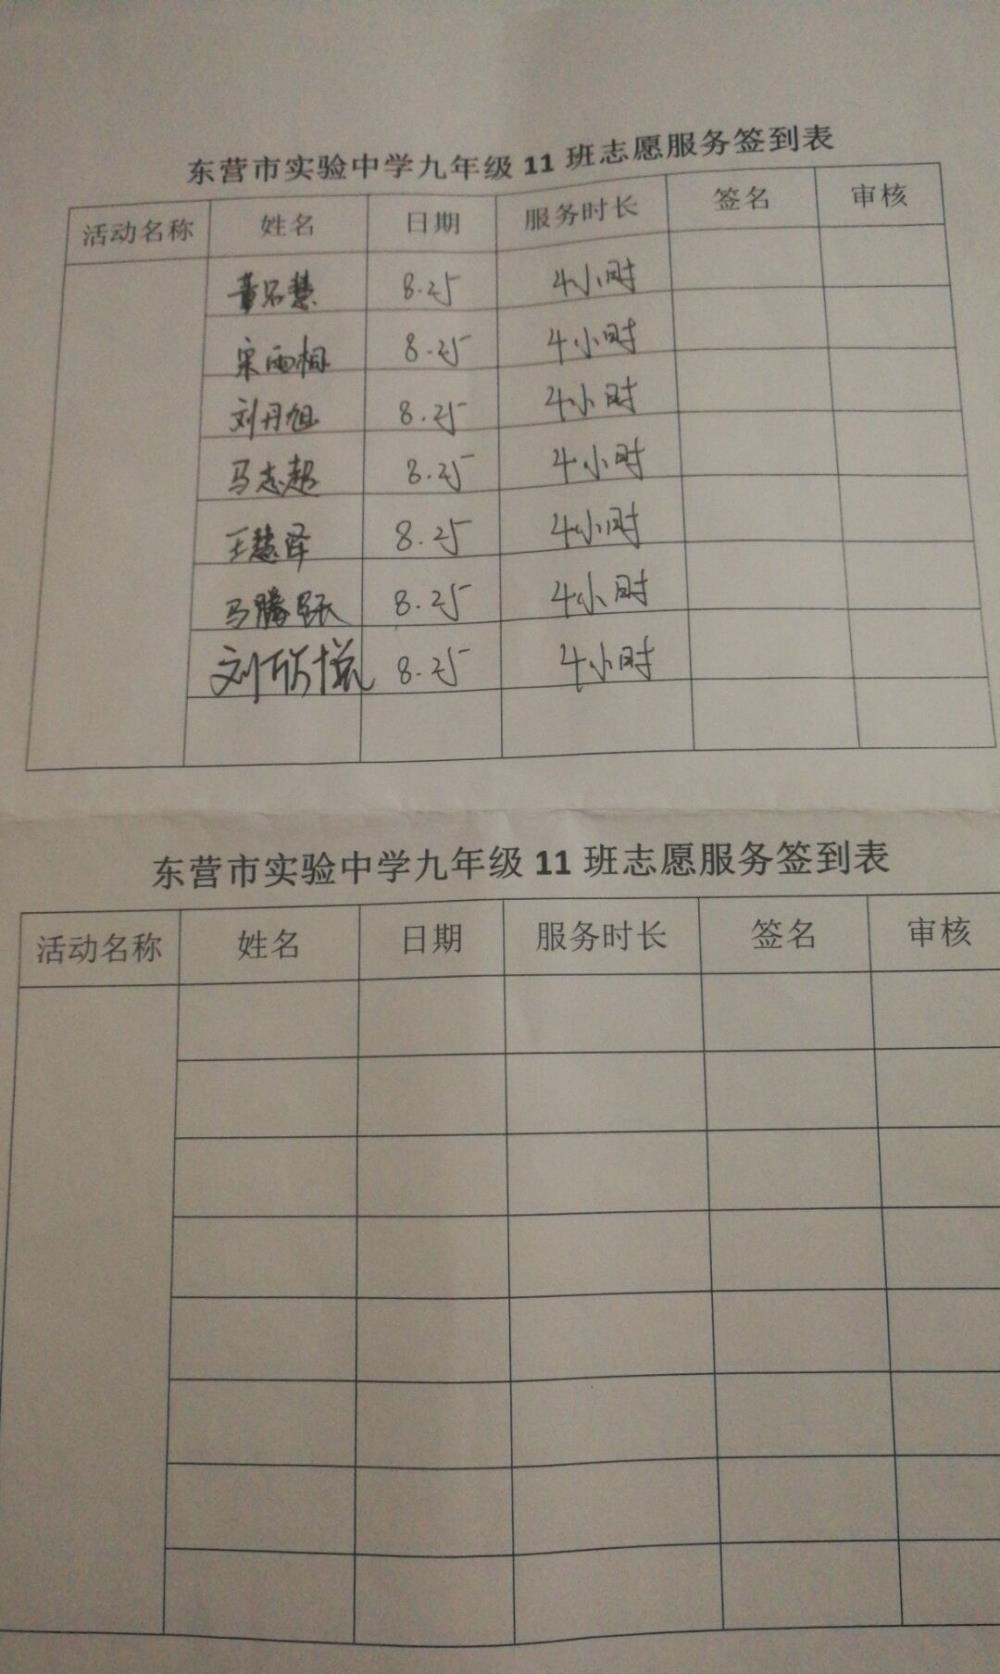 东营市实验中学九年级 11 班志愿服务签到表
活动名称 姓名 日期 服务时长 签名 审核
董名慧 8.25 4小时
宋雨桐 8.25 4小时
刘丹旭 8.25 4小时
马志超 8.25 4小时
王慧泽 8.25 4小时
马腾跃 8.25 4小时
刘欣悦 8.25 4小时
东营市实验中学九年级 11 班志愿服务签到表
活动名称 姓名 日期 服务时长 签名 审核